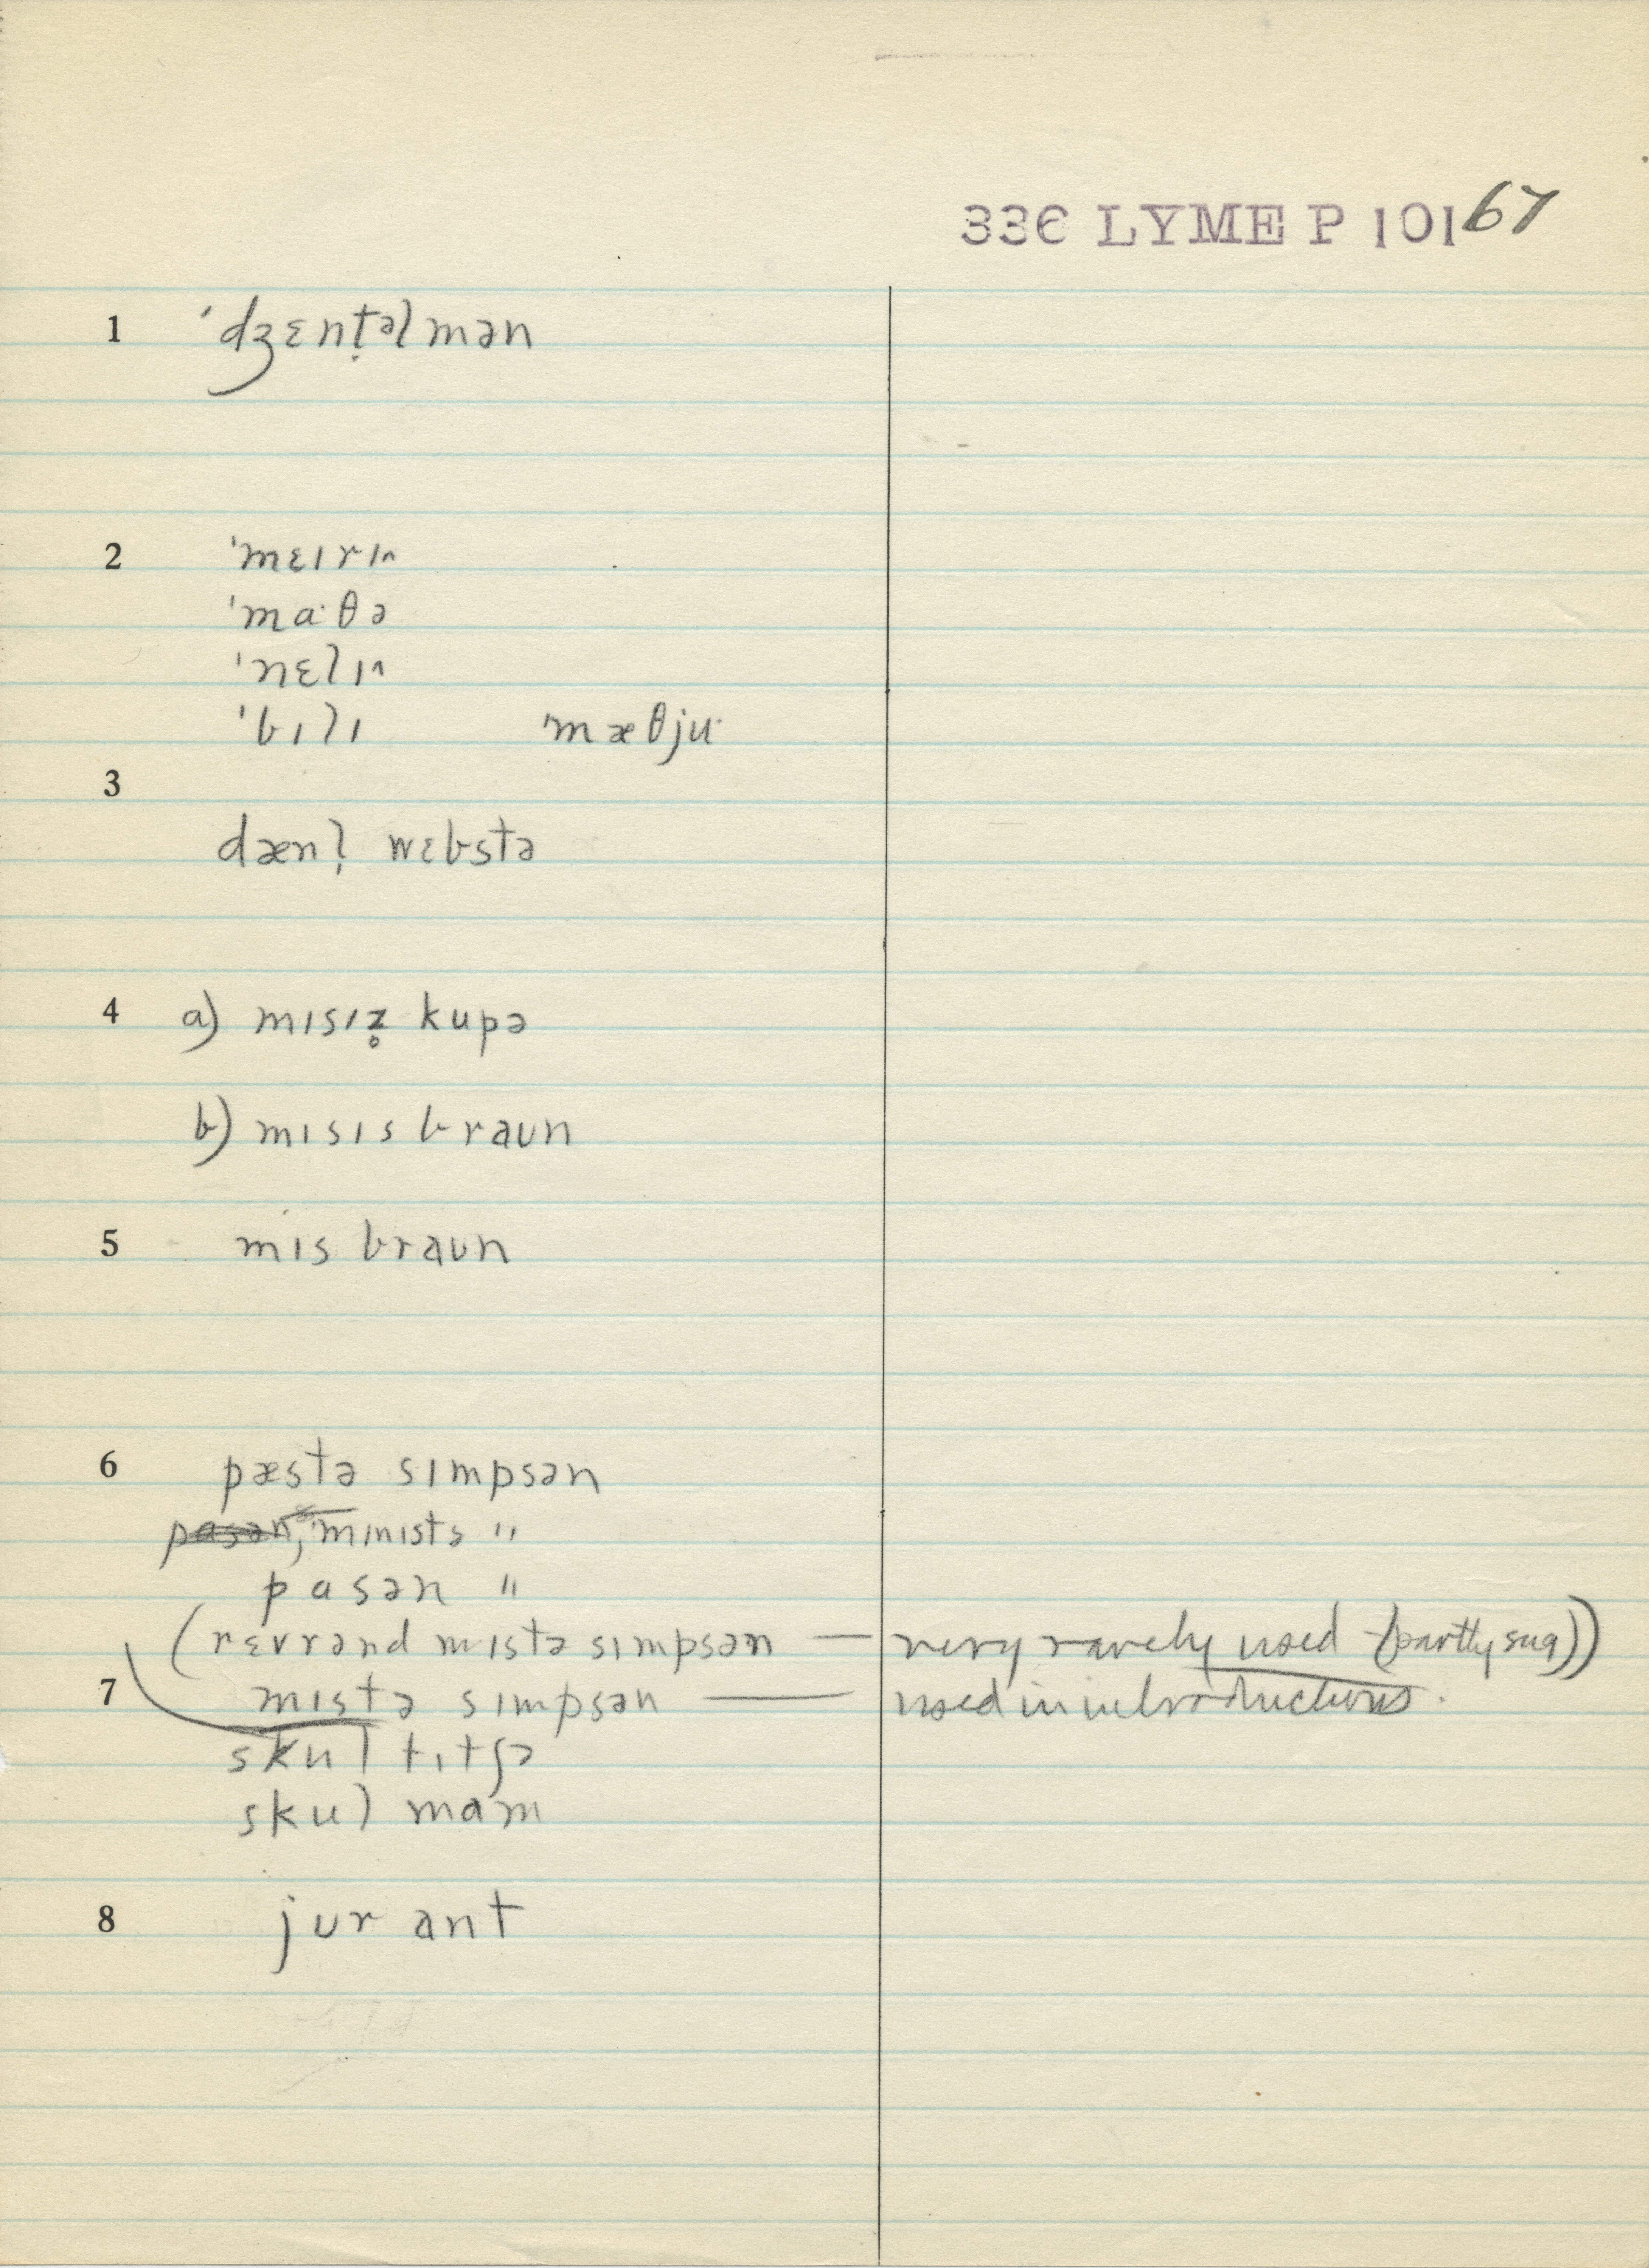 336 LYME P 101 67
1 ˈdʒɛnt̬əlmən
2 ˈmɛɪrɪ^
ˈma·θə
ˈnɛlɪ^
ˈbɪlɪ ˈmæθju·
3
dæn̩l wɛbstə
4 a) mɪsɪz̥ kupə
b) mɪsɪs braʊn
5 mɪs braʊn
6 pæstə sɪmpsən
pasən, mɪnɪstə "
pasən "
(rɛvrənd mɪstə sɪmpsən — very rarely used (partly sug))
7 mɪstə sɪmpsən — used in introductions.
skul titʃə
skul mam
8 jʊr ant